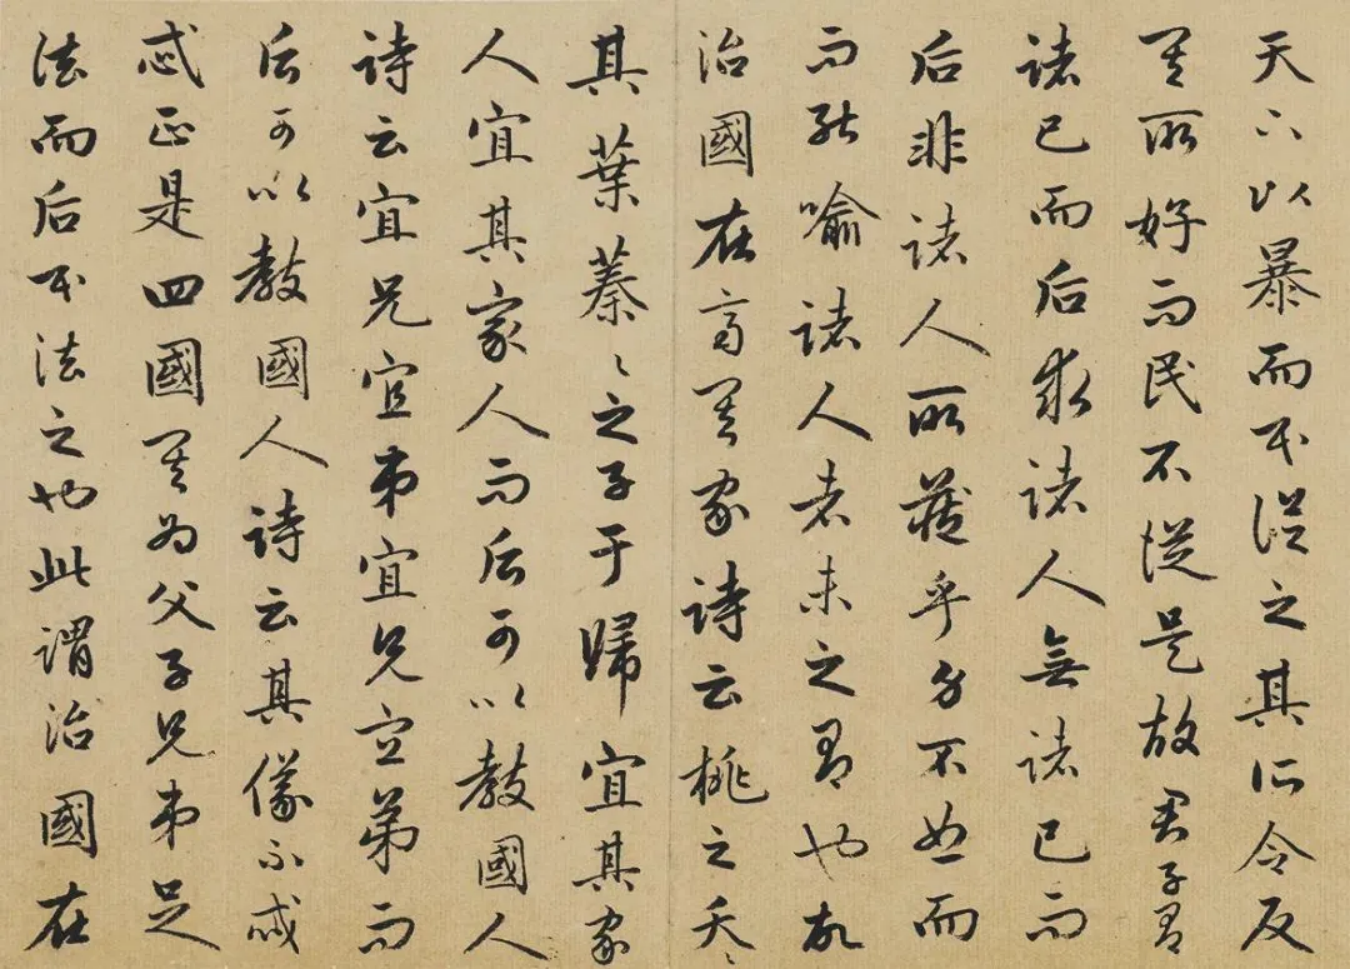 天下以暴而民從之其所令反
其所好而民不從是故君子有
諸己而后求諸人無諸己而
后非諸人所藏乎身不恕而
而能喻諸人者未之有也故
治國在齊其家詩云桃之夭〻
其葉蓁〻之子于歸宜其家
人宜其家人而后可以教國人
詩云宜兄宜弟宜兄宜弟而
后可以教國人詩云其儀不忒
忒正是四國其為父子兄弟足
法而后民法之也此謂治國在